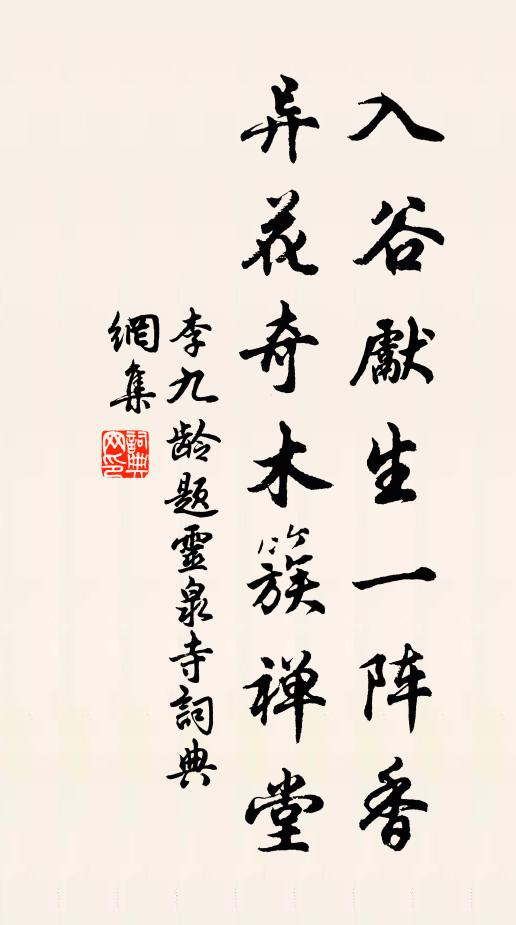 入谷獻生一阵香
异花奇木簇禅堂
李九龄题靈泉寺詞典
網集
詞典
网